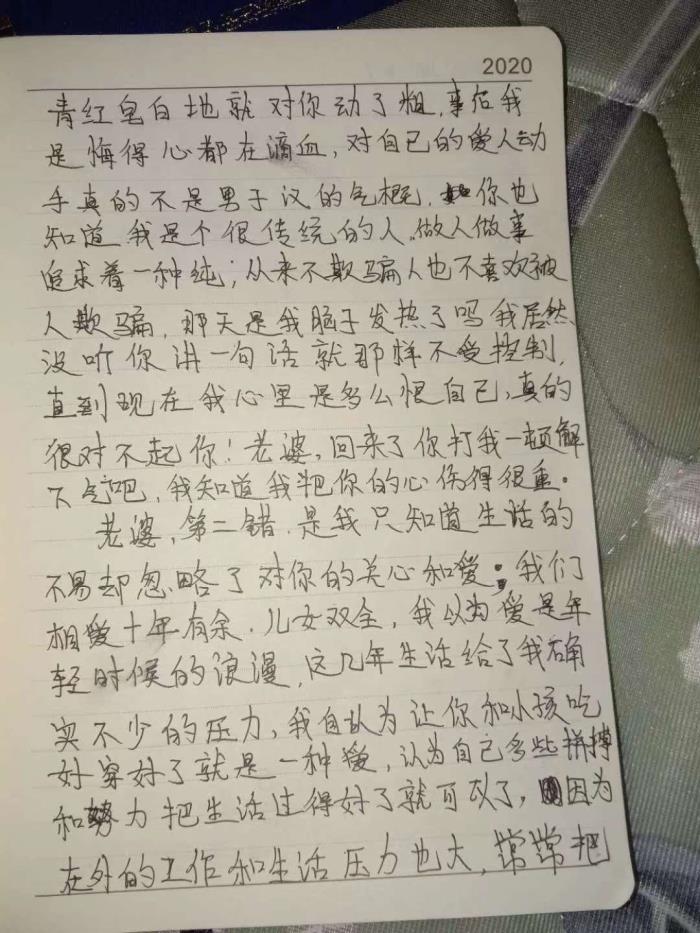 2020
青红皂白地就对你动了粗,事后我
是悔得心都在滴血,对自己的爱人动
手真的不是男子汉的气概,你也
知道我是个很传统的人,做人做事
追求着一种纯;从来不欺骗人也不喜欢被
人欺骗,那天是我脑子发热了吗我居然
没听你讲一句话就那样不受控制,
直到现在我心里是多么恨自己,真的
很对不起你!老婆,回来了你打我一顿解
下气吧,我知道我把你的心伤得很重。
老婆,第二错.是我只知道生活的
不易却忽略了对你的关心和爱;我们
相爱十年有余.儿女双全,我以为爱是年
轻时候的浪漫,这几年生活给了我确
实不少的压力,我自认为让你和小孩吃
好穿好了就是一种爱,认为自己多些拼搏
和努力把生活过得好了就可以了,因为
在外的工作和生活压力也大,常常把